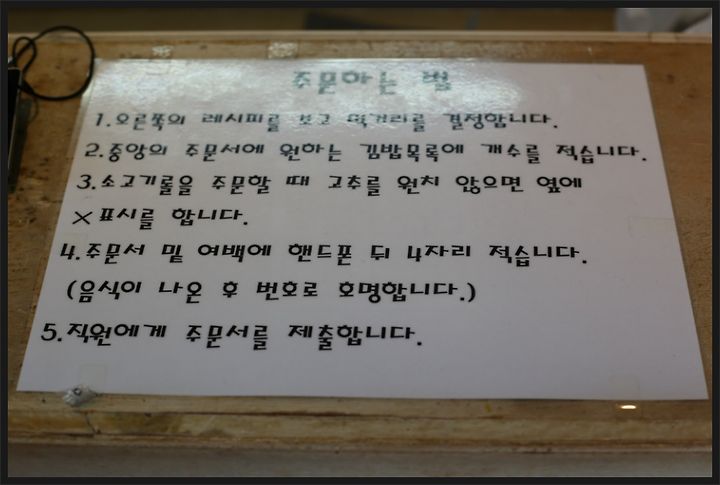 주문하는 법
1.오른쪽의 레시피를 보고 먹거리를 결정합니다.
2.중앙의 주문서에 원하는 김밥목록에 개수를 적습니다.
3.소고기롤을 주문할 때 고추를 원치 않으면 옆에
×표시를 합니다.
4.주문서 밑 여백에 핸드폰 뒤 4자리 적습니다.
(음식이 나온 후 번호로 호명합니다.)
5.직원에게 주문서를 제출합니다.